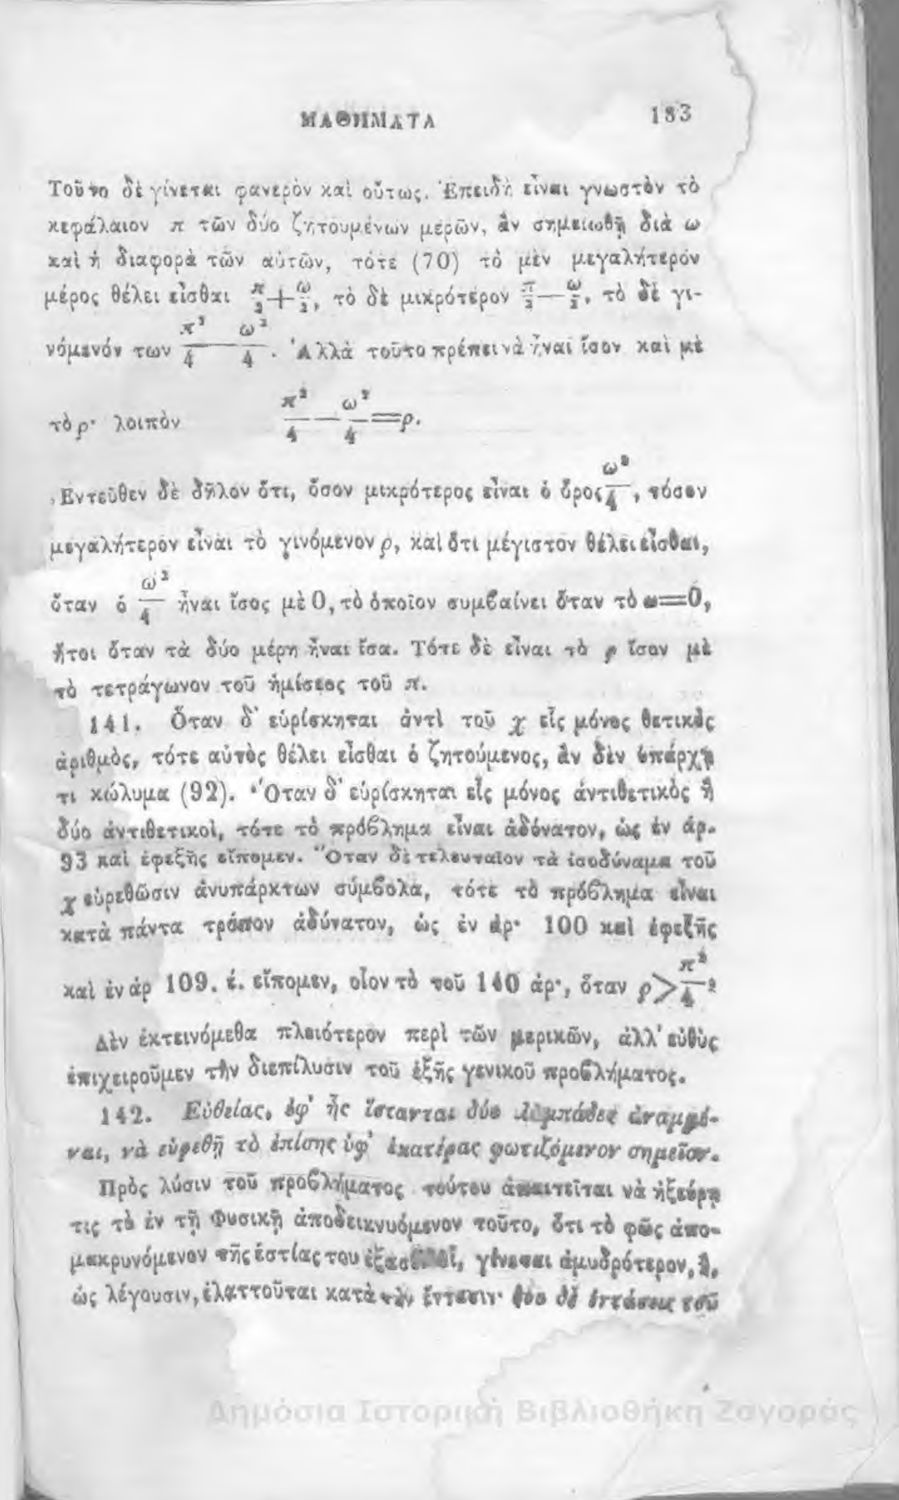 ΜΑΘΗΜΑΤΑ 183
Τοῦτο δὲ γίνεται φανερὸν καὶ οὕτως. Ἐπειδὴ εἶναι γνωστὸν τὸ
κεφάλαιον π τῶν δύο ζητουμένων μερῶν, ἂν σημειωθῇ διὰ ω
καὶ ἡ διαφορὰ τῶν αὐτῶν, τότε (70) τὸ μὲν μεγαλήτερον
μέρος θέλει εἶσθαι π/2+ω/2, τὸ δὲ μικρότερον π/2—ω/2, τὸ δὲ γι-
νόμενόν των π²/4—ω²/4. Ἀλλὰ τοῦτο πρέπει νὰ ἦναι ἴσον καὶ μὲ
τὸ ρ· λοιπὸν π²/4—ω²/4=ρ.
Ἐντεῦθεν δὲ δῆλον ὅτι, ὅσον μικρότερος εἶναι ὁ ὅρος ω²/4, τόσον
μεγαλήτερον εἶναι τὸ γινόμενον ρ, καὶ ὅτι μέγιστον θέλει εἶσθαι,
ὅταν ὁ ω²/4 ἦναι ἴσος μὲ 0, τὸ ὁποῖον συμβαίνει ὅταν τὸ ω=0,
ἤτοι ὅταν τὰ δύο μέρη ἦναι ἴσα. Τότε δὲ εἶναι τὸ ρ ἴσον μὲ
τὸ τετράγωνον τοῦ ἡμίσεος τοῦ π.
141. Ὅταν δ' εὑρίσκηται ἀντὶ τοῦ χ εἷς μόνος θετικὸς
ἀριθμὸς, τότε αὐτὸς θέλει εἶσθαι ὁ ζητούμενος, ἂν δὲν ὑπάρχῃ
τι κώλυμα (92). Ὅταν δ' εὑρίσκηται εἷς μόνος ἀντιθετικὸς ἢ
δύο ἀντιθετικοὶ, τότε τὸ πρόβλημα εἶναι ἀδύνατον, ὡς ἐν ἀρ.
93 καὶ ἐφεξῆς εἴπομεν. Ὅταν δὲ τελευταῖον τὰ ἰσοδύναμα τοῦ
χ εὑρεθῶσιν ἀνυπάρκτων σύμβολα, τότε τὸ πρόβλημα εἶναι
κατὰ πάντα τρόπον ἀδύνατον, ὡς ἐν ἀρ· 100 καὶ ἐφεξῆς
καὶ ἐν ἀρ 109. ἐ. εἴπομεν, οἷον τὸ τοῦ 140 ἀρ·, ὅταν ρ>π²/4.
Δὲν ἐκτεινόμεθα πλειότερον περὶ τῶν μερικῶν, ἀλλ' εὐθὺς
ἐπιχειροῦμεν τὴν διεπίλυσιν τοῦ ἑξῆς γενικοῦ προβλήματος.
142. Εὐθείας, ἐφ' ἧς ἵστανται δύο λαμπάδες ἀναμμέ-
ναι, νὰ εὑρεθῇ τὸ ἐπίσης ὑφ' ἑκατέρας φωτιζόμενον σημεῖον.
Πρὸς λύσιν τοῦ προβλήματος τούτου ἀπαιτεῖται νὰ ἠξεύρῃ
τις τὸ ἐν τῇ Φυσικῇ ἀποδεικνυόμενον τοῦτο, ὅτι τὸ φῶς ἀπο-
μακρυνόμενον τῆς ἑστίας του γίνεται ἀμυδρότερον, ἢ,
ὡς λέγουσιν, ἐλαττοῦται κατὰ τὴν ἔντασιν· δύο δὲ ἐντάσεις τοῦ
Δημόσια Ιστορική Βιβλιοθήκη Ζαγοράς